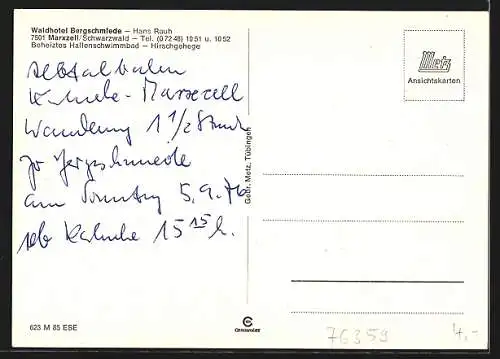 Waldhotel Bergschmiede – Hans Rauh
7501 Marxzell/Schwarzwald – Tel. (07248) 1051 u. 1052
Beheiztes Hallenschwimmbad – Hirschgehege
Metz
Ansichtskarten
Marxzell
Wanderung 1 1/2 Stunde
zu
am Sonntag 5.9.76
15 15 h.
Gebr. Metz, Tübingen
623 M 85 ESE
76359
4,-